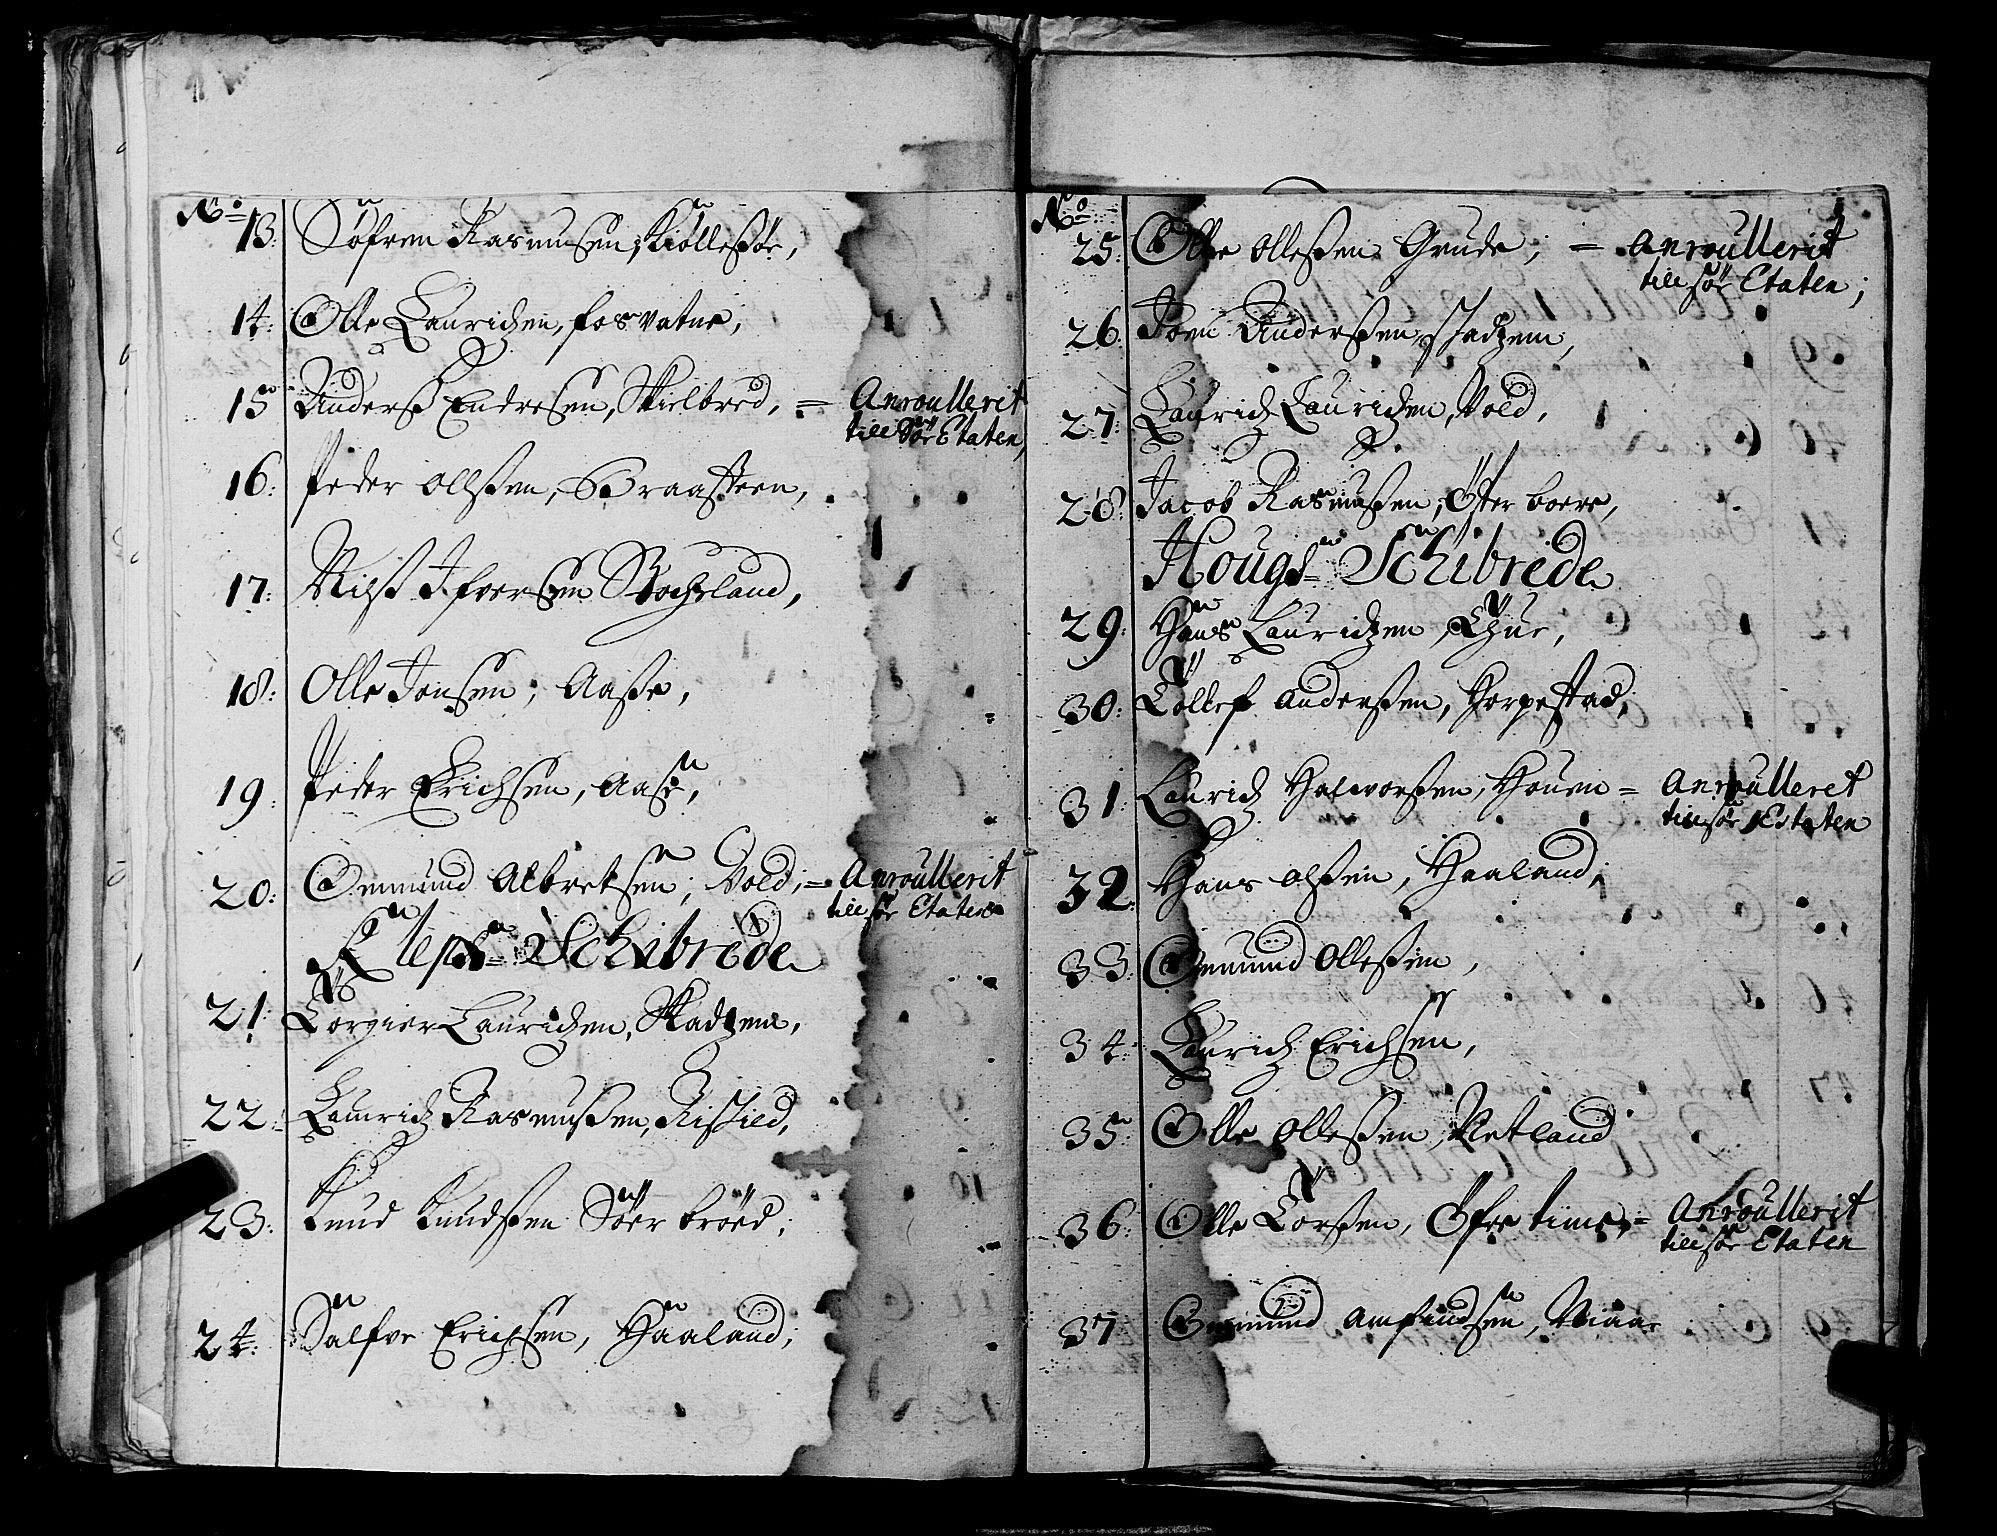 No
13: Søfren Rasmusen, Kiølleßør,
14: Olle Lauridzen, fosvatne,
15 Anderß Endresen, Skielbred, = Anroullerit
till Sør Etaten,
16: Peder Olleßen, Braasteen,
17: Nilß Ifversen
18: Olle Jonsen; Aaße,
19: Peder Erichsen, Aaße,
20: Ommund Albretsen; Vold, = Anroullerit
till sør Etaten
Kleps Schibrede
21: Torgier Lauridzen, Skadzem,
22: Lauridz Rasmußen,
23: Knud Knudßen Søer brøed,
24: Salfve Erichsen, Haaland,
No
25: Olle Olleßen Grude; = Anroullerit
till sør Etaten;
26: Joen Anderßen, Skadzem,
27: Lauridz Lauridzen, Vold,
28: Jacob Rasmußen, Øster boere,
Hougs Schibrede
29: Hans Lauridzen, Thue,
30: Tollef Anderßen, Horpestad,
31: Lauridz Halvorßen, Houen = Anroulleret
till sør Etaten
32: Hans Olßen, Haaland,
33: Ommund Olleßen,
34: Lauridz Erichsen,
35: Olle Olleßen, Netland
36: Olle Torßen, Øfre time, = Anroullerit
till sør Etaten
37 Ommund Amfindsen, Niaa